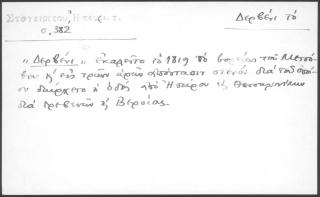 Στογειρίτου, Ἤπειρ. τ.
σ. 382
Δερβένι τό
"Δερβένι" ἐκαλεῖτο τό 1819 τό βορείως τοῦ Μετσό-
βου κ' εἰς τριῶν ὡρῶν ἀπόστασιν στενόν διά τοῦ ὁποί-
ου διήρχετο ἡ ὁδός ἀπό Ἠπείρου εἰς Θεσσαλονίκην
διά Γρεβενῶν κ' Βεροίας.